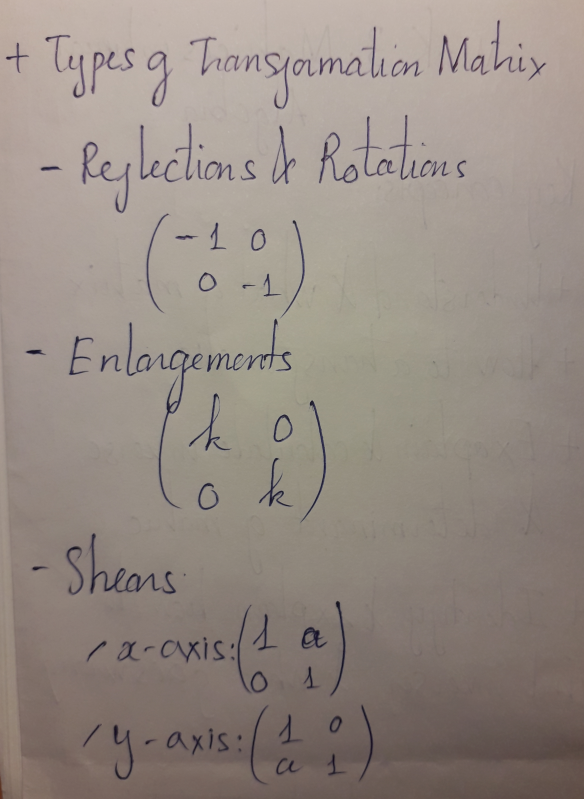 + Types of Transformation Matrix
- Reflections & Rotations
(-1 0
0 -1)
- Enlargements
(k 0
0 k)
- Shears
/ x-axis: (1 a
0 1)
/ y-axis: (1 0
a 1)